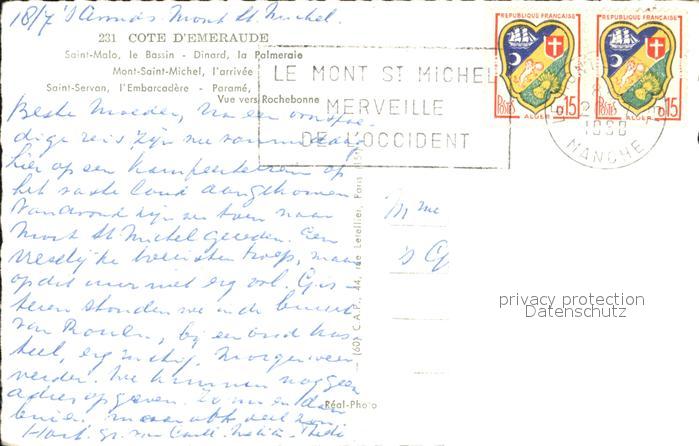 18/7 's Avonds. Mont St Michel.
231 COTE D'EMERAUDE
Saint-Malo, le Bassin - Dinard, la Palmeraie
Mont-Saint-Michel, l'arrivée
Saint-Servan, l'Embarcadère - Paramé,
Vue vers Rochebonne
LE MONT ST MICHEL
MERVEILLE
DE L'OCCIDENT
REPUBLIQUE FRANÇAISE
POSTES
ALGER
0,15
REPUBLIQUE FRANÇAISE
POSTES
ALGER
0,15
MANCHE
Beste Moeder, Na een voorspoe-
dige reis zijn we vanmiddag
hier op een kampeerterrein op
het vaste land aangekomen.
Vanavond zijn we even naar
Mont St Michel gereden. Een
vreselijke toeristen troep, maar
op dit uur niet erg vol. Gis-
teren stonden we in de buurt
van Rouen, bij een oud kas-
teel, erg rustig. Morgen weer
verder. We kunnen nog geen
adres opgeven.
Hart. gr. van
(60) C.A.P., 44, rue Letellier, Paris (15e)
Réal-Photo
Mme
's G
privacy protection
Datenschutz